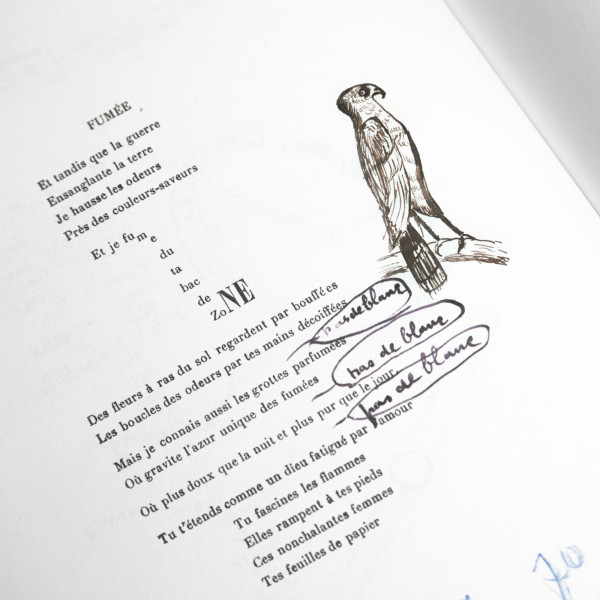 FUMÉE
Et tandis que la guerre
Ensanglante la terre
Je hausse les odeurs
Près des couleurs-saveurs
Et je fume
du
ta
bac
de
ZoNE
Des fleurs à ras du sol regardent par bouffées
Les boucles des odeurs par tes mains décoiffées
Mais je connais aussi les grottes parfumées
Où gravite l'azur unique des fumées
Où plus doux que la nuit et plus pur que le jour
Tu t'étends comme un dieu fatigué par l'amour
Tu fascines les flammes
Elles rampent à tes pieds
Ces nonchalantes femmes
Tes feuilles de papier
pas de blanc
pas de blanc
pas de blanc